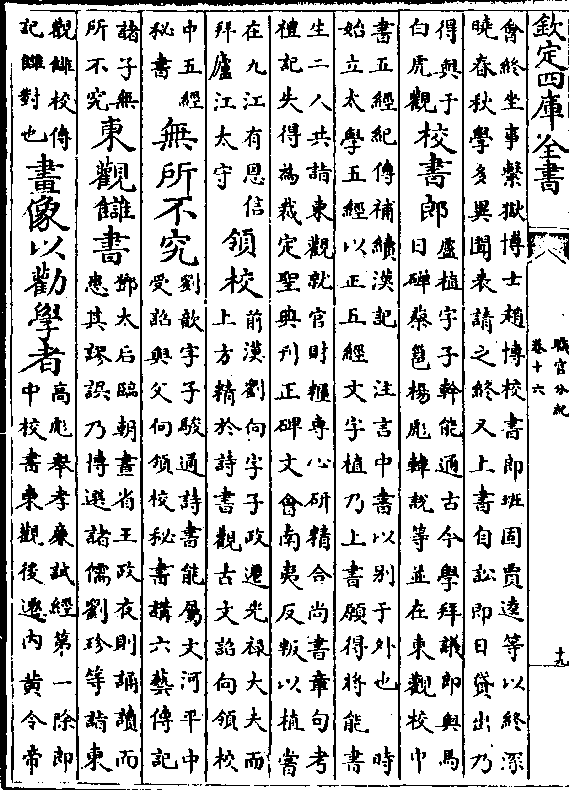 欽定四庫全書
職官分紀
卷十六
十九
會終坐事繫獄博士趙博校書郎班固賈逵等以終深
曉春秋學多異聞表請之終又上書自訟即日貸出乃
得與于
白虎觀
校書郎
盧植字子幹能通古今學拜議郎與馬
日磾蔡邕楊彪韓說等並在東觀校中
書五經紀傳補續漢記 注言中書以别于外也 時
始立太學五經以正五經文字植乃上書願得將能書
生二人共詣東觀就官財糧專心研精合尚書章句考
禮記失得為裁定聖典刊正碑文會南夷反叛以植嘗
在九江有恩信
拜廬江太守
領校
前漢劉向字子政遷光禄大夫而
上方精於詩書觀古文詔向領校
中五經
秘書
無所不究
劉歆字子駿通詩書能屬文河平中
受詔與父向領校秘書講六藝傳記
諸子無
所不究
東觀讎書
鄧太后臨朝晝省王政夜則誦讀而
患其謬誤乃博選諸儒劉珍等詣東
觀讎校傳
記讎對也
畫像以勸學者
高彪舉孝廉試經第一除郎
中校書東觀後遷内黄令帝